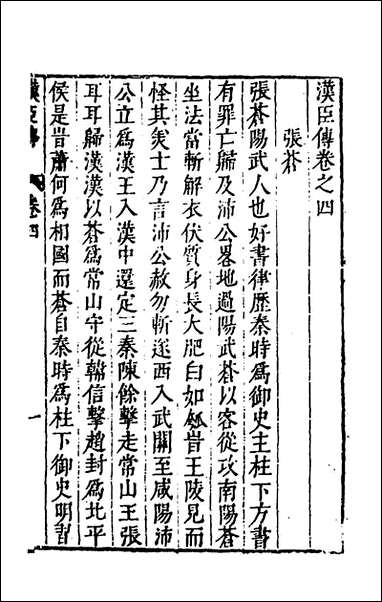 漢臣傳卷之四
張蒼
張蒼陽武人也好書律歷秦時爲御史主柱下方書
有罪亡歸及沛公畧地過陽武蒼以客從攻南陽蒼
坐法當斬解衣伏質身長大肥白如瓠旹王陵見而
怪其美士乃言沛公赦勿斬遂西入武關至咸陽沛
公立爲漢王入漢中還定三秦陳餘擊走常山王張
耳耳歸漢漢以蒼爲常山守從韓信擊趙封爲北平
侯是旹蕭何爲相國而蒼自秦時爲柱下御史明習
漢臣傳
卷四
一